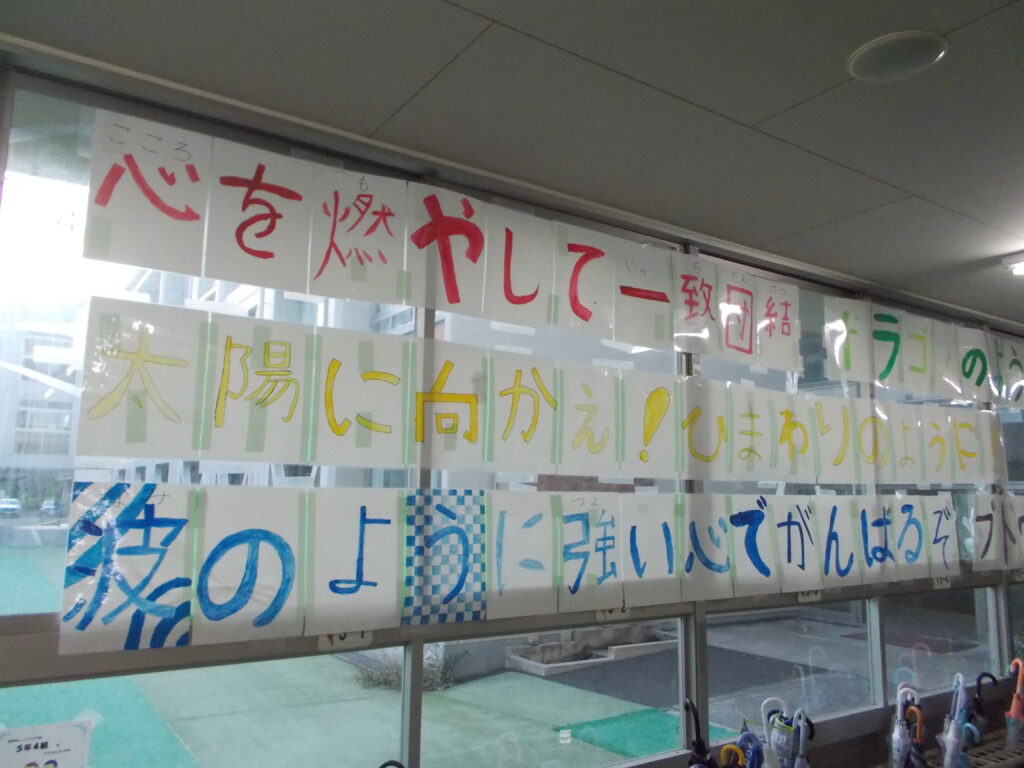 こころ も いっ ち だん けつ
心を燃やして一致団結 ドラゴンのよう
太陽に向かえ!ひまわりのように
つよ
波のように強い心でがんばるぞ
5年4組